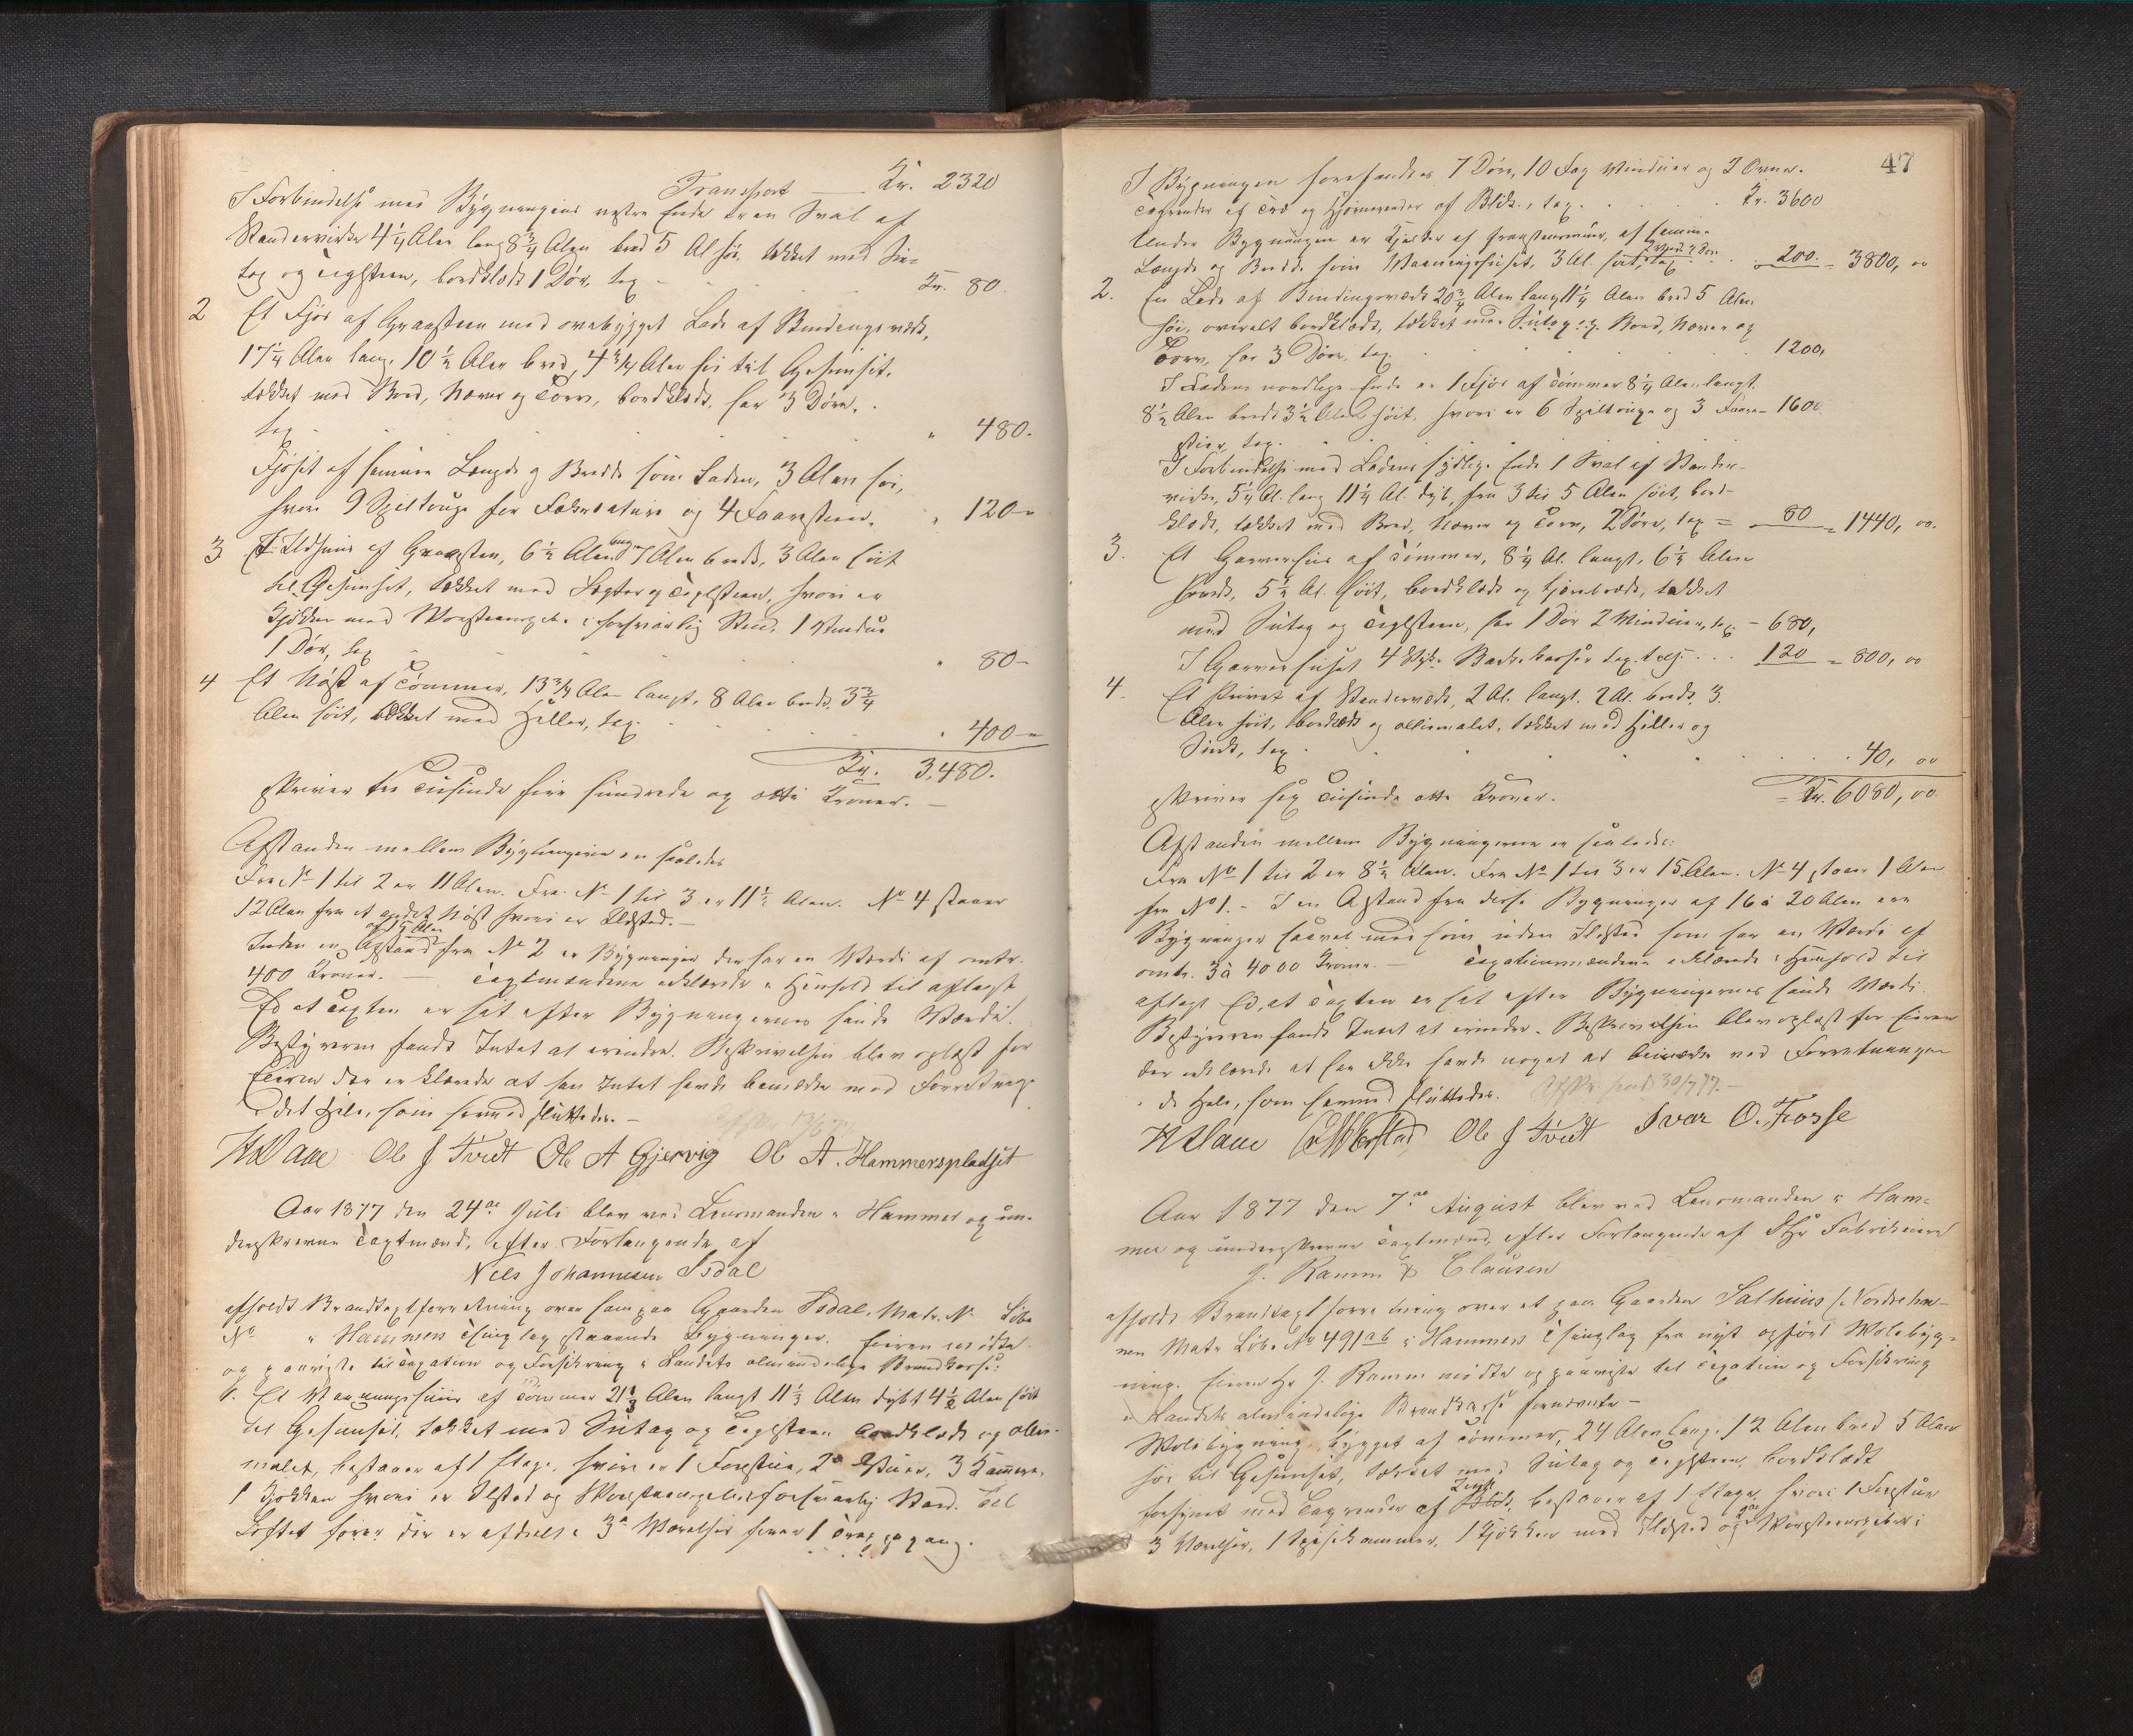 Transport — Kr. 2320
I Forbindelse med Bygningens vestre Ende er en Sval af
Standerværk 4 1/4 Alen lang 8 3/4 Alen bred 5 Al høi, tækket med Su-
tag og Teglsteen, bordklædt 1 Dør, tax Kr. 80.
2 Et Fjøs af Graasteen med overbygget Lade af Bindingsværk,
17 1/4 Alen lang, 10 1/2 Alen bred, 4 3/4 Alen høi til Gesimset,
tækket med Bord, Næver og Torv, bordklædt, har 3 Døre,
tax " 480.
Fjøset af samme Længde og Bredde som Laden, 3 Alen høi,
hvori 9 Spiltouge for Fækreature og 4 Faarestier. " 120 "
3 Et Ildhuus af Graasten, 6 1/2 Alen lang 7 Alen bredt, 3 Alen høit
til Gesimset, tækket med Lægter og Teglsteen, hvori er
Kjøkken med Skorsteenspibe i forsvarlig Stand, 1 Vindue
1 Dør, tax " 80 -
4 Et Nøst af Tømmer, 13 3/4 Alen langt, 8 Alen bredt, 3 3/4
Alen høit, tækket med Heller, tax. " 400 "
Kr. 3,480.
skriver tre Tusinde fire hundrede og otti Kroner. —
Afstanden mellem Bygningerne er saaledes
Fra No 1 til 2 er 11 Alen. Fra No 1 til 3 er 11 1/2 Alen. No 4 staaer
12 Alen fra et andet Nøst hvori er Ildsted. —
af 15 Alen
Inden en Afstand fra No 2 er Bygninger der har en Værdi af omtr.
400 Kroner. — Taxtmændene erklærede i Henhold til aflagt
Ed at Taxten er sat efter Bygningernes sande Værdi.
Bestyreren fandt Intet at erindre. Beskrivelsen blev oplæst for
Eieren der erklærede at han Intet havde bemærke med Forretning-
i det Hele, som hermed sluttedes. —
Ole J Tvedt Ole A Gjervig Ol A. Hammerspladset
Aar 1877 den 24de Juli blev ved Lensmanden i Hammer og un-
derskrevne Taxtmænd, efter Forlangende af
Nils Johannesen Isdal
afholdt Brandtaxtforretning over ham paa Gaarden Isdal, Matr. No Løbe
No i Hammers Thinglag staaende Bygninger. Eieren mødte
og paaviste til Taxation og Forsikring i Landets almindelige Brandkasse:
1. Et Vaaningshuus af Tømmer 21 1/3 Alen langt 11 1/3 Alen dybt 4 1/2 Alen høit
til Gesimset, tækket med Sutag og Teglsteen bordklædt og olie-
malet, bestaaer af 1 Etage, hvori er 1 Forstue, 2de Stuer, 3 Kammere,
1 Kjøkken hvori er Ildsted og Skorsteenspibe i forsvarlig Stand. Til
Loftet hvor der er afdeelt i 3de Værelser fører 1 Trappegang.
47
I Bygningen forefandtes 7 Døre, 10 Fag Vinduer og 2 Ovne.
Tagrender af Træ og Hjørnerender af Blik, tax. Kr. 3600
Under Bygningen er Kjelder af Graasteensmuur, af samme
Længde og Bredde som Vaaningshuset, 3 Al. høit, tax 200. - 3800, 00
2. En Lade af Bindingsværk 20 3/4 Alen lang 11 1/4 Alen bred 5 Alen
høi, overalt bordklædt, tækket med Sutag og Bord, Næver og
Torv, har 3 Døre, tax. 1200,
I Ladens nordlige Ende er 1 Fjøs af Tømmer 8 1/4 Alen langt,
8 1/2 Alen bredt 3 1/2 Alen høit, hvori er 6 Spiltouge og 3 Faare- 160.
stier, tax.
I Forbindelse med Ladens sydlige Ende 1 Sval af Stander-
værk, 5 1/4 Al. lang 11 1/4 Al. dyb, fra 3 til 5 Alen høit, bord-
klædt, tækket med Bord, Næver og Torv, 2 Døre, tax = 80 = 1440, 00.
3. Et Garverhus af Tømmer, 8 1/4 Al. langt, 6 1/2 Alen
bredt, 5 1/2 Al. høit, bordklædt og tjærebrædt, tækket
med Sutag og Teglsteen, har 1 Dør 2 Vinduer, tax - 680,
I Garverhuset 4 Stk. Barkekasser tax. 120 = 800, 00
4. Et Privet af Standerværk, 2 Al. langt, 2 Al. bredt, 3
Alen høit, bordklædt og oliemalet, tækket med Heller og
tax 40, 00
= Kr. 6080, 00.
skriver sex Tusinde otti Kroner.
Afstanden mellem Bygningerne er saaledes:
Fra No 1 til 2 er 8 1/2 Alen. Fra No 1 til 3 er 15 Alen. No 4 staaer 1 Alen
fra No 1. - I en Afstand fra disse Bygninger af 16 à 20 Alen ere
Bygninger saavel med som uden Ildsted som har en Værdi af
omtr. 3 à 4000 Kroner. — Taxationsmændene erklærede i Henhold til
aflagt Ed, at Taxten er sat efter Bygningernes sande Værdi.
Bestyreren fandt Intet at erindre. Beskrivelsen blev oplæst for Eieren
der erklærede at han ikke havde noget at bemærke ved Forretningen
i det Hele, som hermed sluttedes. Afskr. sendt 30/7 77. —
Ole J Tvedt Ivar O. Fosse
Aar 1877 den 7de August blev ved Lensmanden i Ham-
mer og underskrevne Taxtmænd, efter Forlangende af DHr Fabrikeiere
J. Ramm & Clausen
afholdt Brandtaxtforretning over et paa Gaarden Salhuus
Matr Løbe No 491ab i Hammers Thinglag fra nyt opført Volsbyg-
ning. Eieren Hr J. Ramm mødte og paaviste til Taxation og Forsikring
i Landets almindelige Brandkasse
bygget af Tømmer, 24 Alen lang, 12 Alen bred 5 Alen
høi til Gesimset, tækket med Sutag og Teglsteen, bordklædt
Zink
forsynet med Tagrender af Blik, bestaaer af 1 Etage, hvori 1 Forstue
3 Værelser, 1 Spisekammer, 1 Kjøkken med Ildsted og Skorsteenspibe i